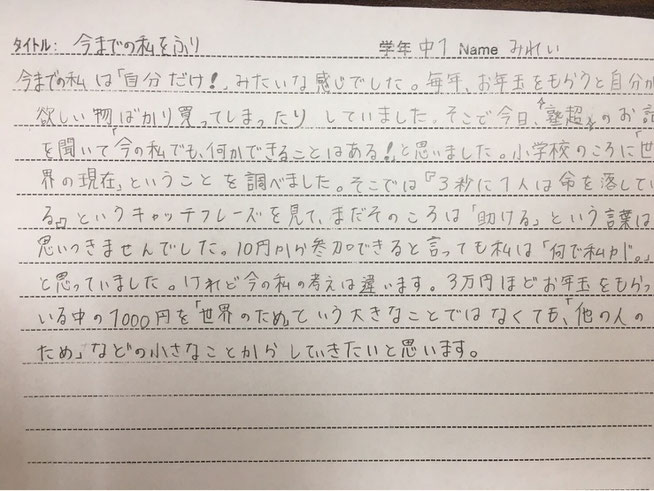 タイトル: 今までの私をふり
学年 中1 Name みれい
今までの私は「自分だけ!」みたいな感じでした。毎年、お年玉をもらうと自分が
欲しい物ばかり買ってしまったりしていました。そこで今日、"塾超"のお話
を聞いて「今の私でも、何かできることはある!」と思いました。小学校のころに「世
界の現在」ということを調べました。そこでは『3秒に1人は命を落してい
る』というキャッチフレーズを見て、まだそのころは「助ける」という言葉は
思いつきませんでした。10円から参加できると言っても私は「何で私が。」
と思っていました。けれど今の私の考えは違います。3万円ほどお年玉をもらっ
いる中の1000円を「世界のため」ていう大きなことではなくても、「他の人の
ため」などの小さなことからしていきたいと思います。